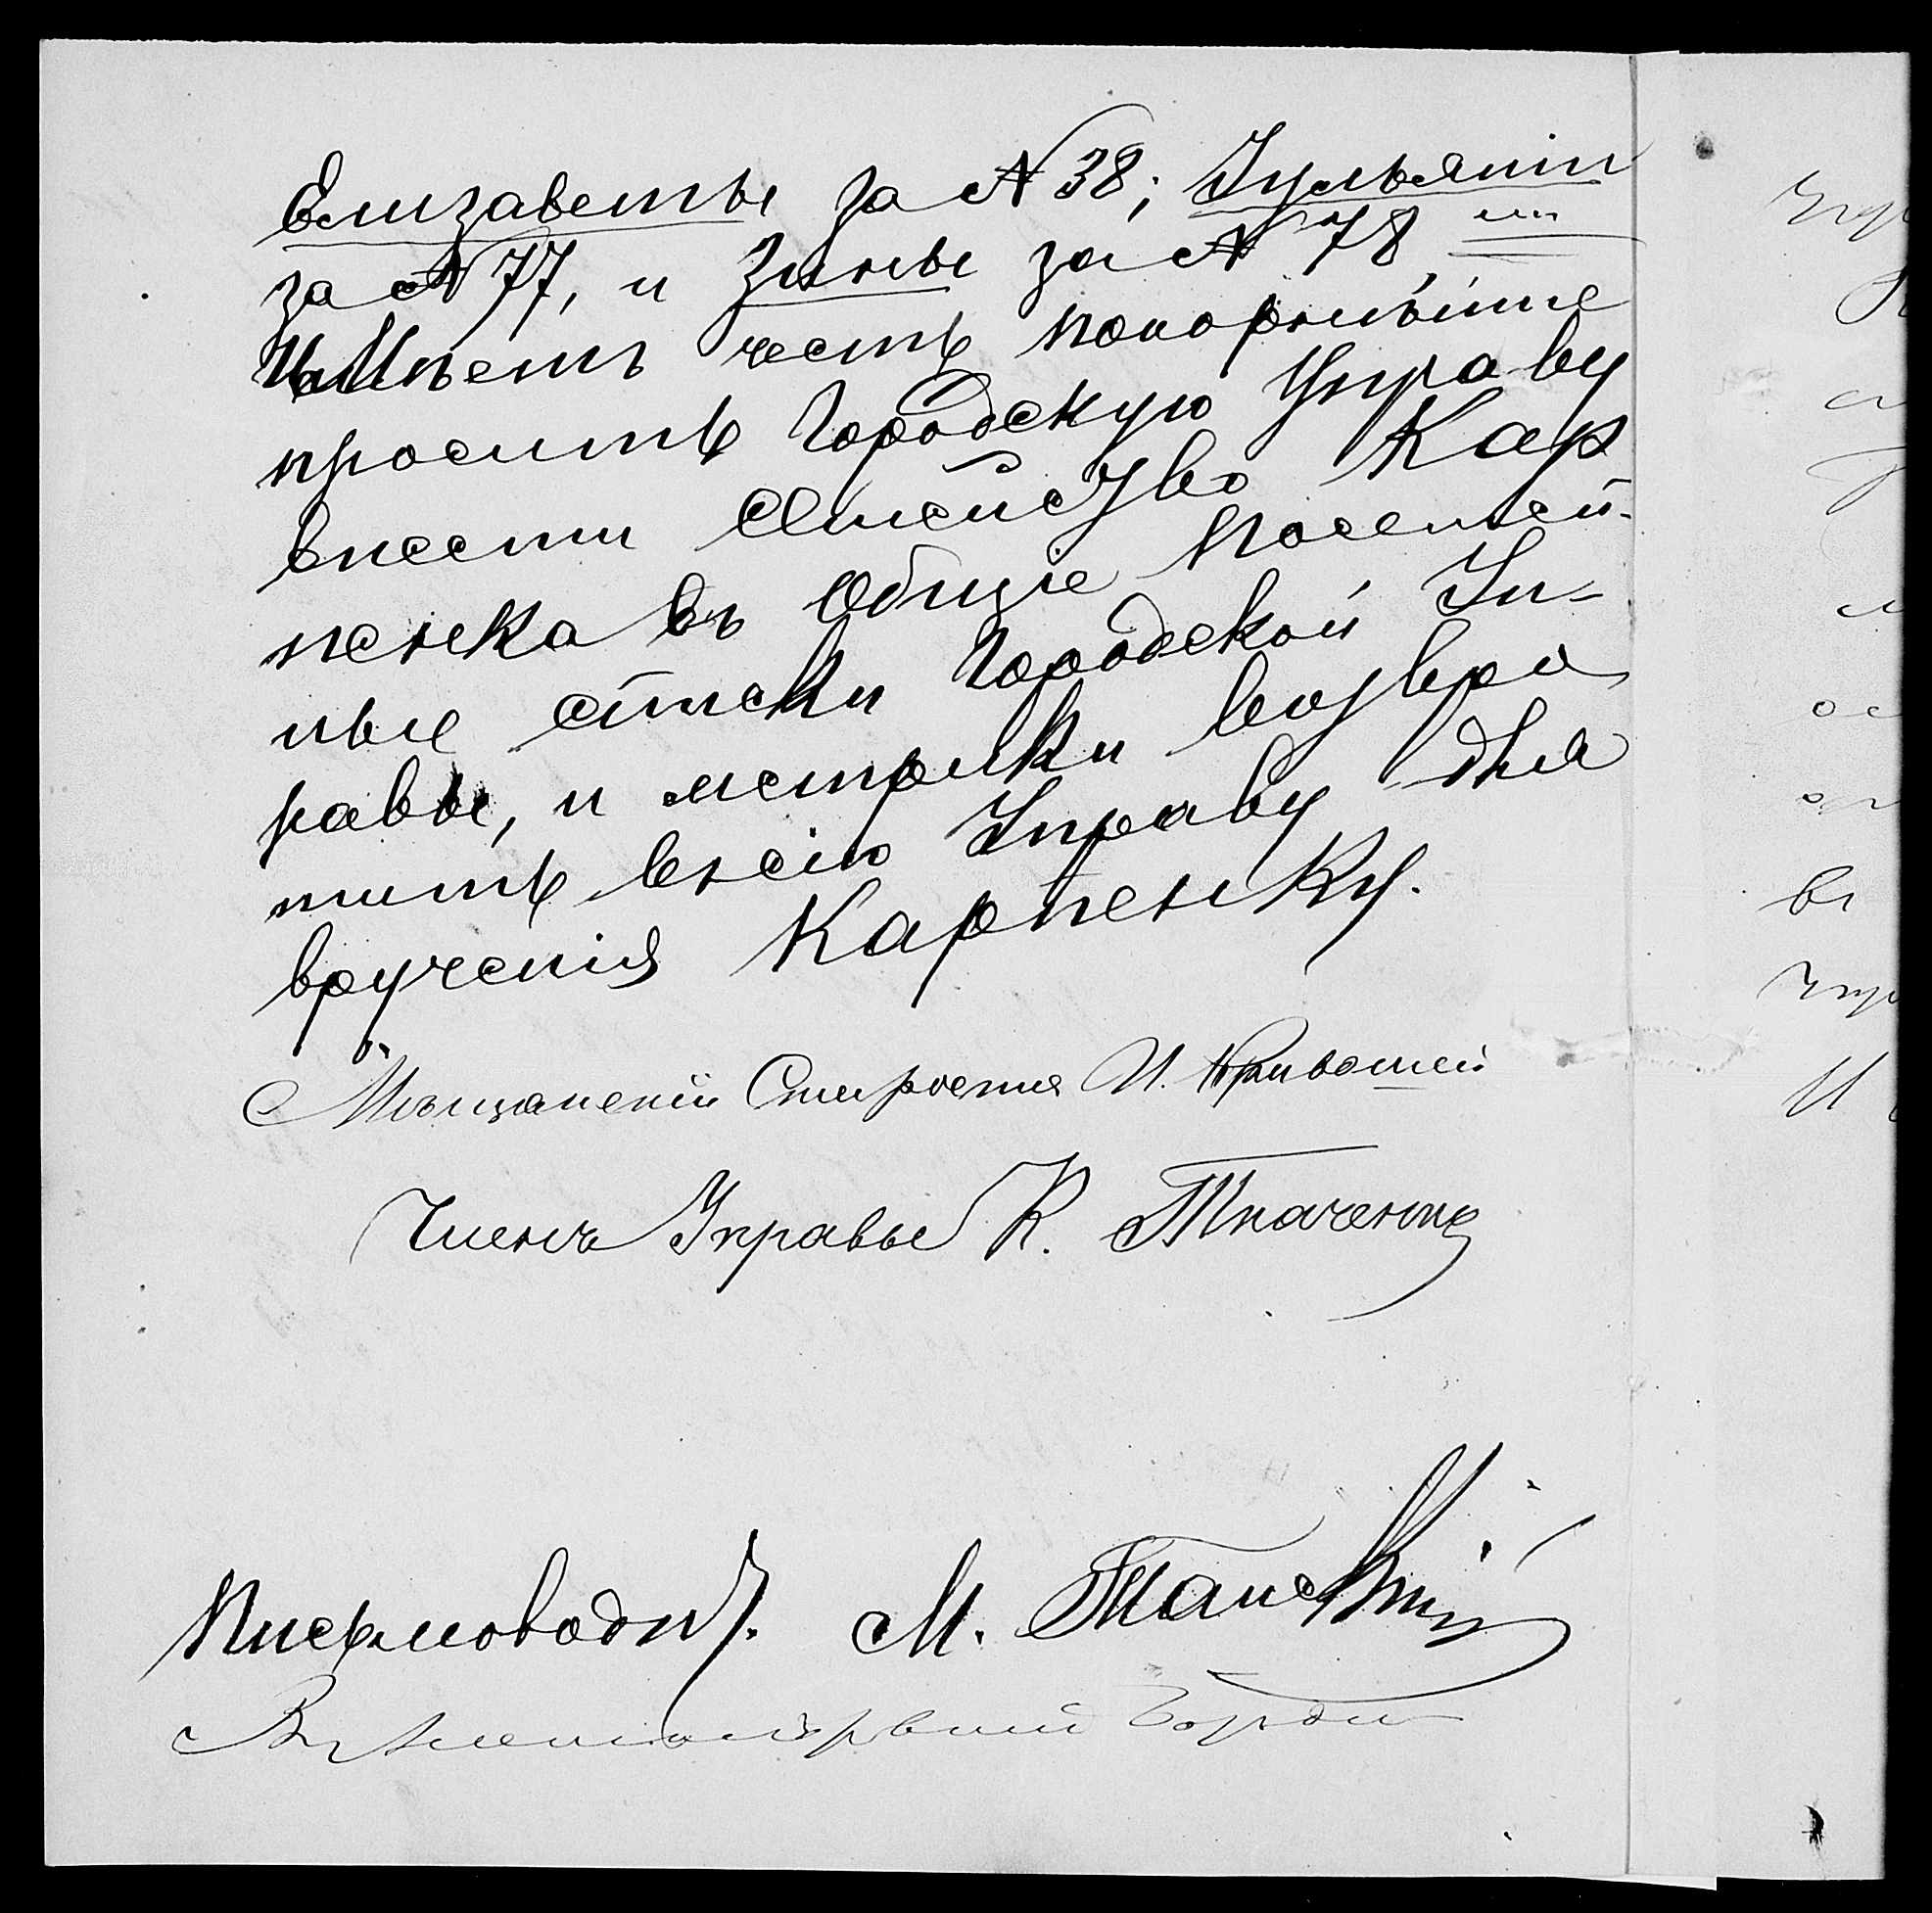 Елизаветы за № 38; Іульянiи
за № 77, и Зины за № 78 ми
Имѣетъ честь покорнѣйше
просить Городскую Управу
внести семейство Кар
пенка въ общіе посемей-
ные списки Городской Уп-
равы, и метрики возвра
тить в сiю Управу для
врученія Карпенку.
Мѣщанскій Староста И. Кривошей
Членъ Управы К. Ткаченко
Письмоводит. М.
В
Упр
вг
Упр
И